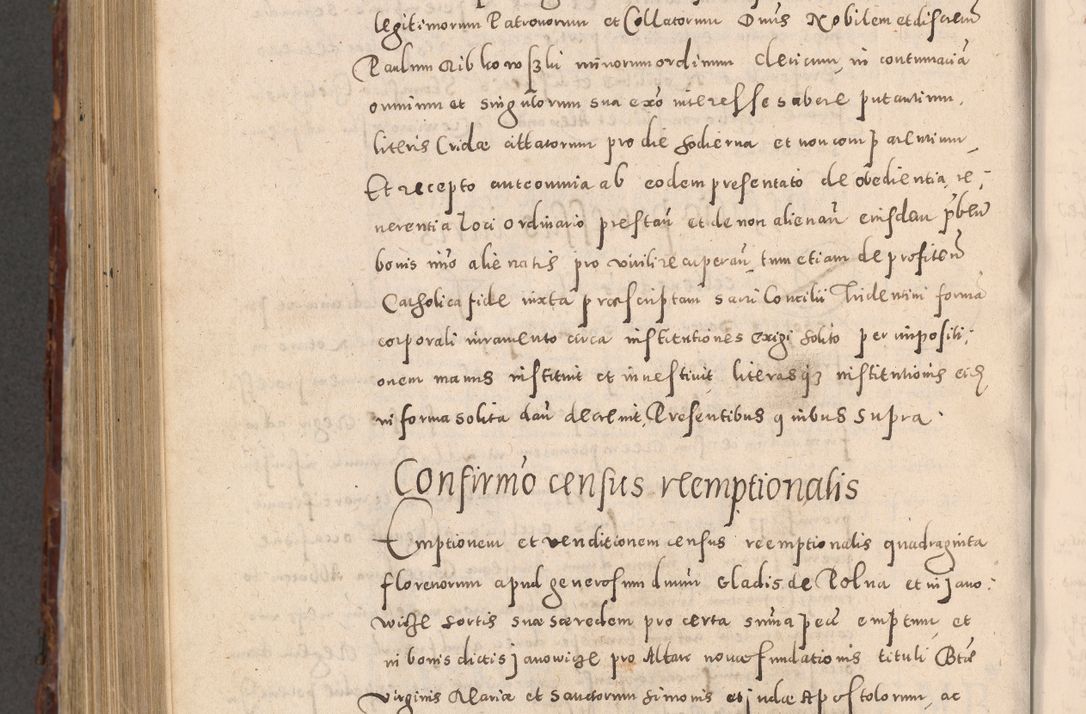 legitimorum Patronorum et Collatorum Dnus Nobilem et discretū
Paulum Ribkowski minorum ordinum Clericum, in contumaciā
omnium et singulorum sua exo interesse habere putantium,
literis Cridæ cittatorum pro die hodierna et non comparentium
Et recepto autcomnia ab eodem presentato de obedientia, re,
nerentia loci ordinario prestań et de non alienań eiusdem pbleū
bonis imo alienatis pro virili recuperań, tum etiam de profitenō
Catholica fide iuxta præscriptam sacri Concilii Tridentini formā
corporali iuramento circa institutiones exigi solito per impositi,
onem manus instituit et investivit, literasq3 institutionis eid
in forma solita dań decrevit, Presentibus quibus supra.
Confirmo census reemptionalis
Emptionem et venditionem census reemptionalis quadraginta
florenorum apud generosum dnum Gladis de Polna et in Jano:
wicze hortis suæ hæredem pro certa suma pecū emptum, et
in bonis dictis Janowicze pro Altare novæ fundationis tituli Btæ
Virginis Mariæ et Sanctorum Simonis et Judæ Apostolorum, ac